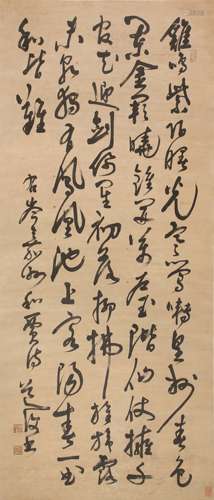 雞鳴紫陌曙光寒鶯囀皇州春色
闌金闕曉鐘開萬戶玉階仙仗擁千
官花迎劍佩星初落柳拂旌旗露
未乾獨有鳳凰池上客陽春一曲
和皆難
右岑嘉州和賈詩 道復書